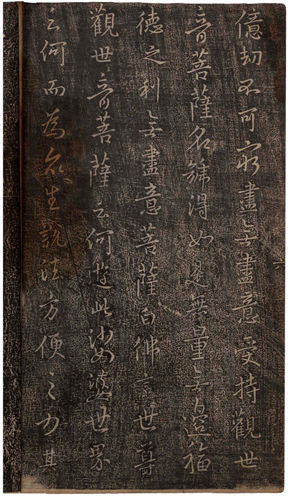 億劫不可窮盡無盡意受持觀世
音菩薩名號得如是無量無邊福
德之利無盡意菩薩白佛言世尊
觀世音菩薩云何遊此娑婆世界
云何而為眾生說法方便之力其